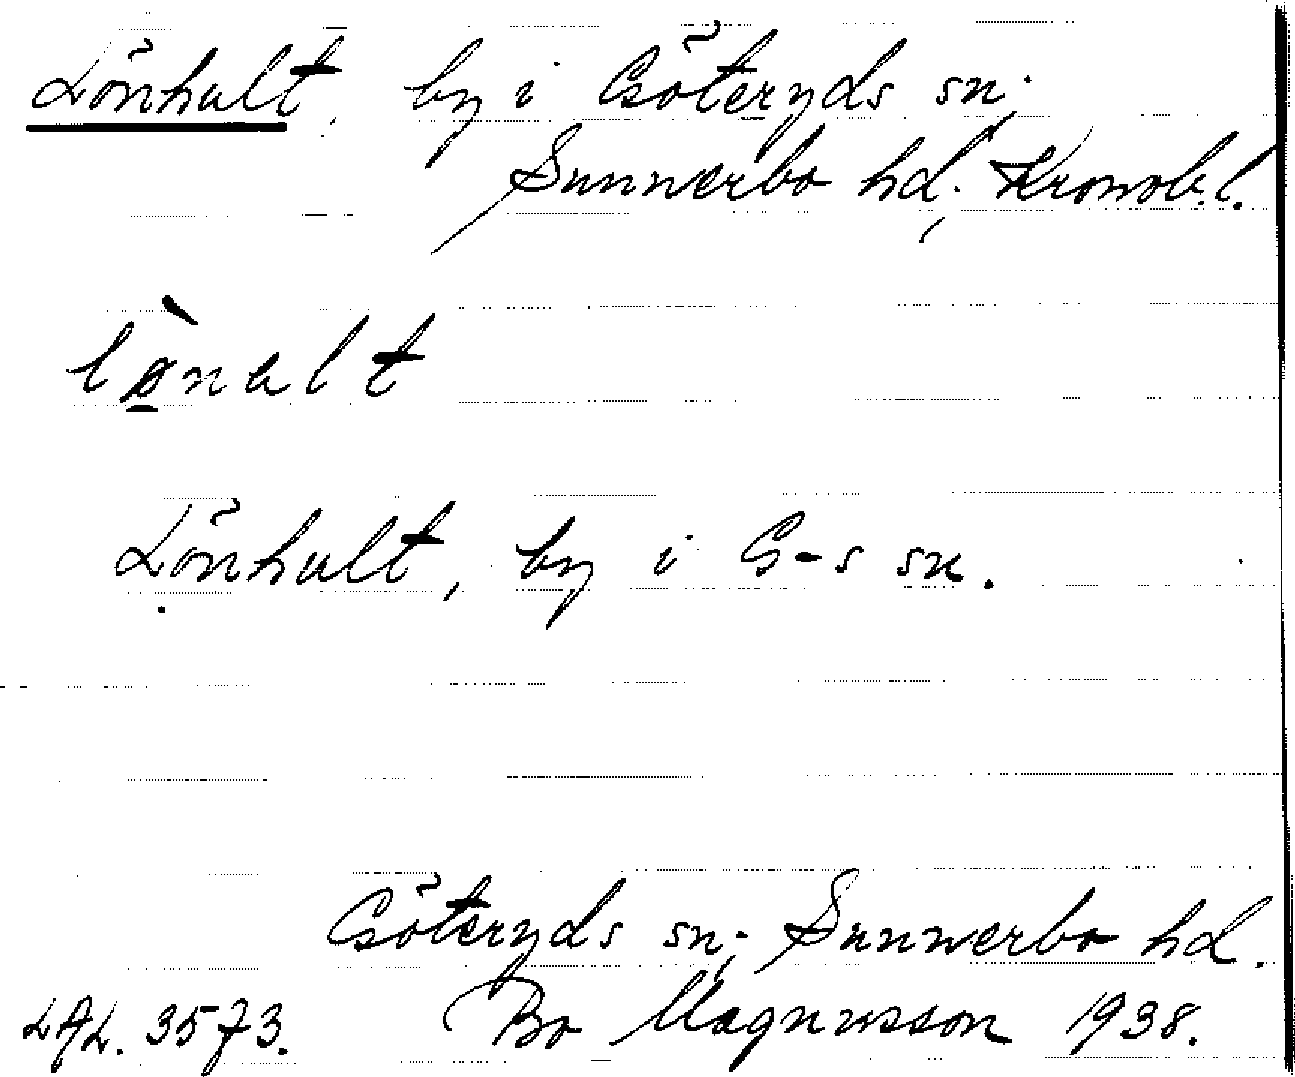 Lönhult, by i Göteryds sn.
Sunnerbo hd, Kronob. l.
lø̀nalt
Lönhult, by i G-s sn.
Göteryds sn; Sunnerbo hd.
LAL. 3573. Bo Magnusson 1938.